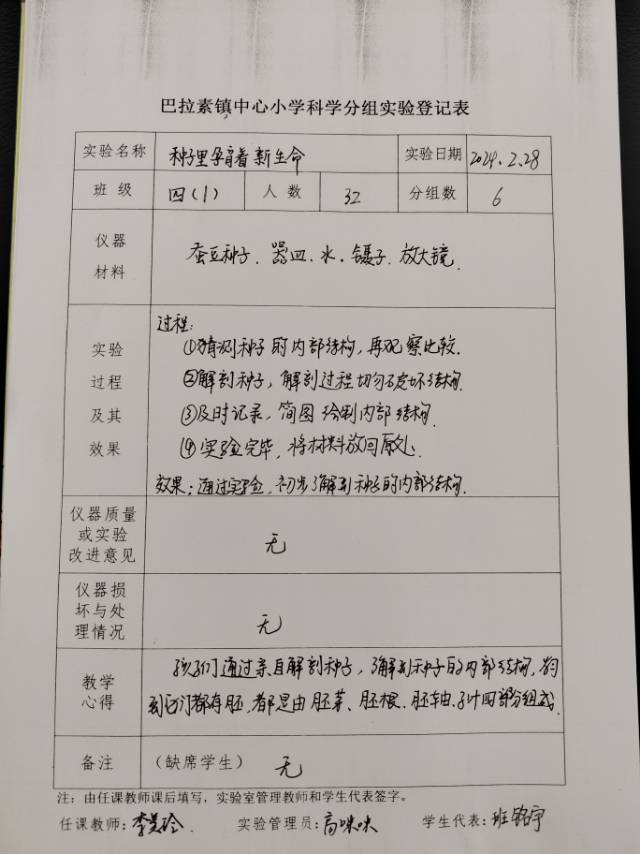 巴拉素镇中心小学科学分组实验登记表
实验名称 种子里孕育着新生命 实验日期 2024.2.28
班级 四(1) 人数 32 分组数 6
仪器材料 蚕豆种子.器皿.水.镊子.放大镜.
实验过程及其效果
过程:
①猜测种子的内部结构,再观察比较.
②解剖种子,解剖过程切勿破坏结构.
③及时记录,简图绘制内部结构.
④实验完毕,将材料放回原处.
效果:通过实验,初步了解到种子的内部结构.
仪器质量或实验改进意见 无
仪器损坏与处理情况 无
教学心得
孩子们通过亲自解剖种子,了解到种子的内部结构,
到它们都有胚,都是由胚芽、胚根.胚轴.子叶四部分组成.
备注 (缺席学生) 无
注:由任课教师课后填写,实验室管理教师和学生代表签字。
任课教师:李 玲 实验管理员:高咪咪 学生代表:班 宇